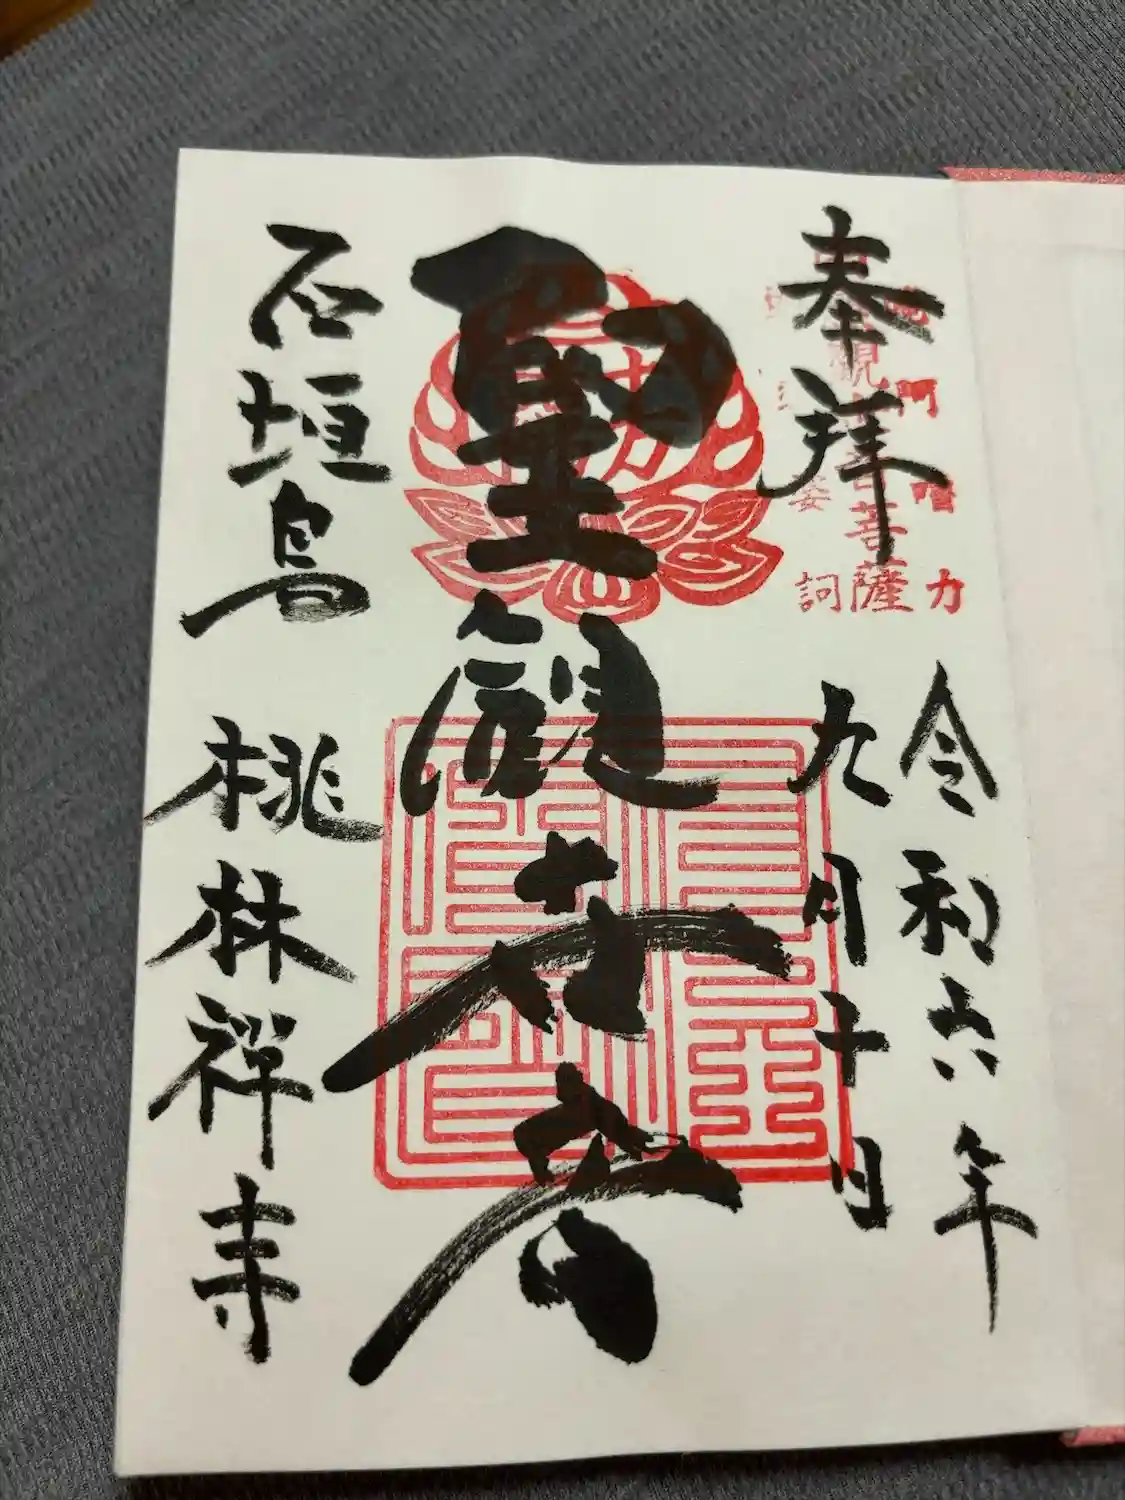 奉拝
令和六年
九月十日
聖観世音
石垣島
桃林禅寺
観
菩薩
阿
力
詞